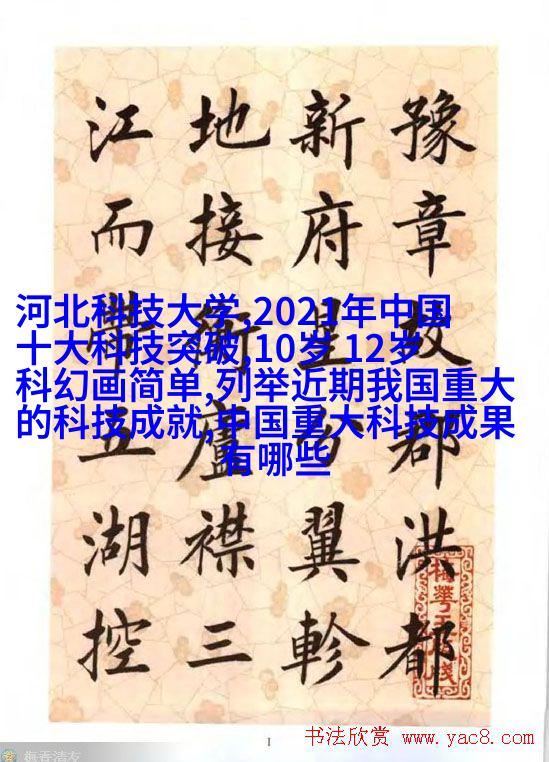 豫章故郡洪都
新府星分翼軫
地接衡廬襟三
江而帶五湖控
河北科技大学,2021年中国
十大科技突破,10岁 12岁
科幻画简单,列举近期我国重大
的科技成就,中国重大科技成果
有哪些
1
书法欣赏 www.yac8.com